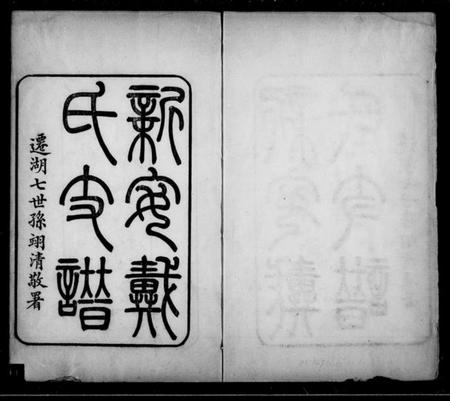 新安戴
氏支譜
遷湖七世孫翊清敬署